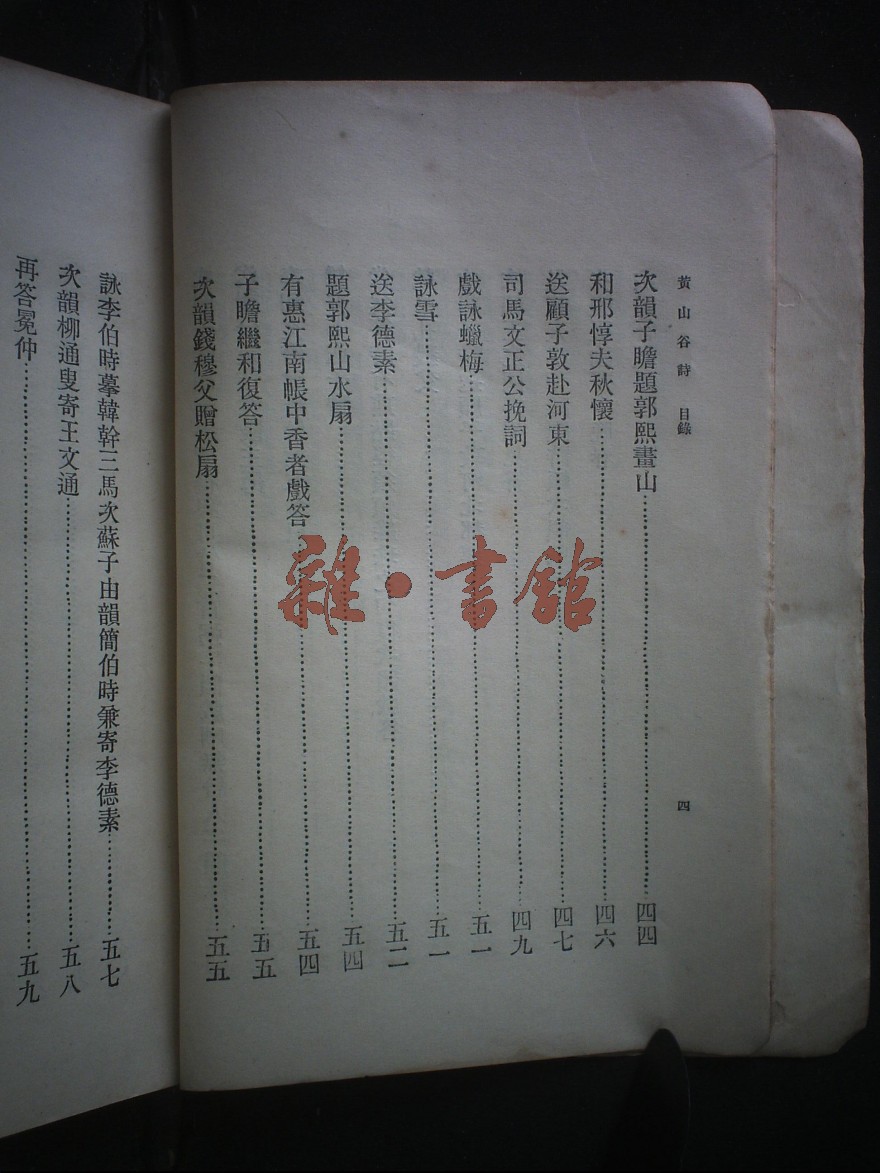 黃山谷詩 目錄
四
次韻子瞻題郭熙畫山……四四
和邢惇夫秋懷……四六
送顧子敦赴河東……四七
司馬文正公挽詞……四九
戲詠蠟梅……五一
詠雪……五一
送李德素……五二
題郭熙山水扇……五四
有惠江南帳中香者戲答……五四
子瞻繼和復答……五五
次韻錢穆父贈松扇……五五
詠李伯時摹韓幹三馬次蘇子由韻簡伯時兼寄李德素……五七
次韻柳通叟寄王文通……五八
再答冕仲……五九
雜·書館